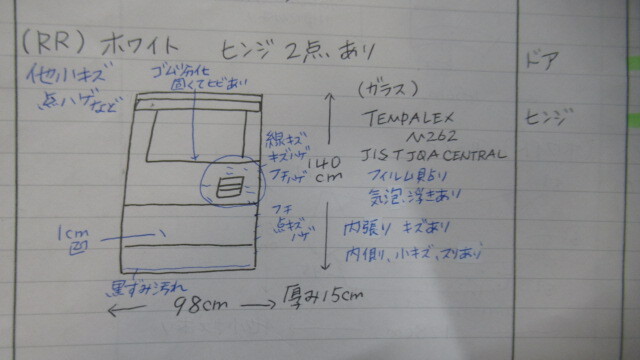 (RR) ホワイト ヒンジ 2点、あり
ドア
他小キズ
点ハゲなど
ゴム劣化
固くてヒビあり
(ガラス)
TEMPALEX
M262
JIS T JQA CENTRAL
フィルム貼り
気泡、浮きあり
内張り キズあり
内側り、小キズ、スリあり
ヒンジ
線キズ
キズハゲ
フチハゲ
140
cm
フチ
点キズ
ハゲ
1cm
凹
黒ずみ汚れ
98cm
厚み15cm